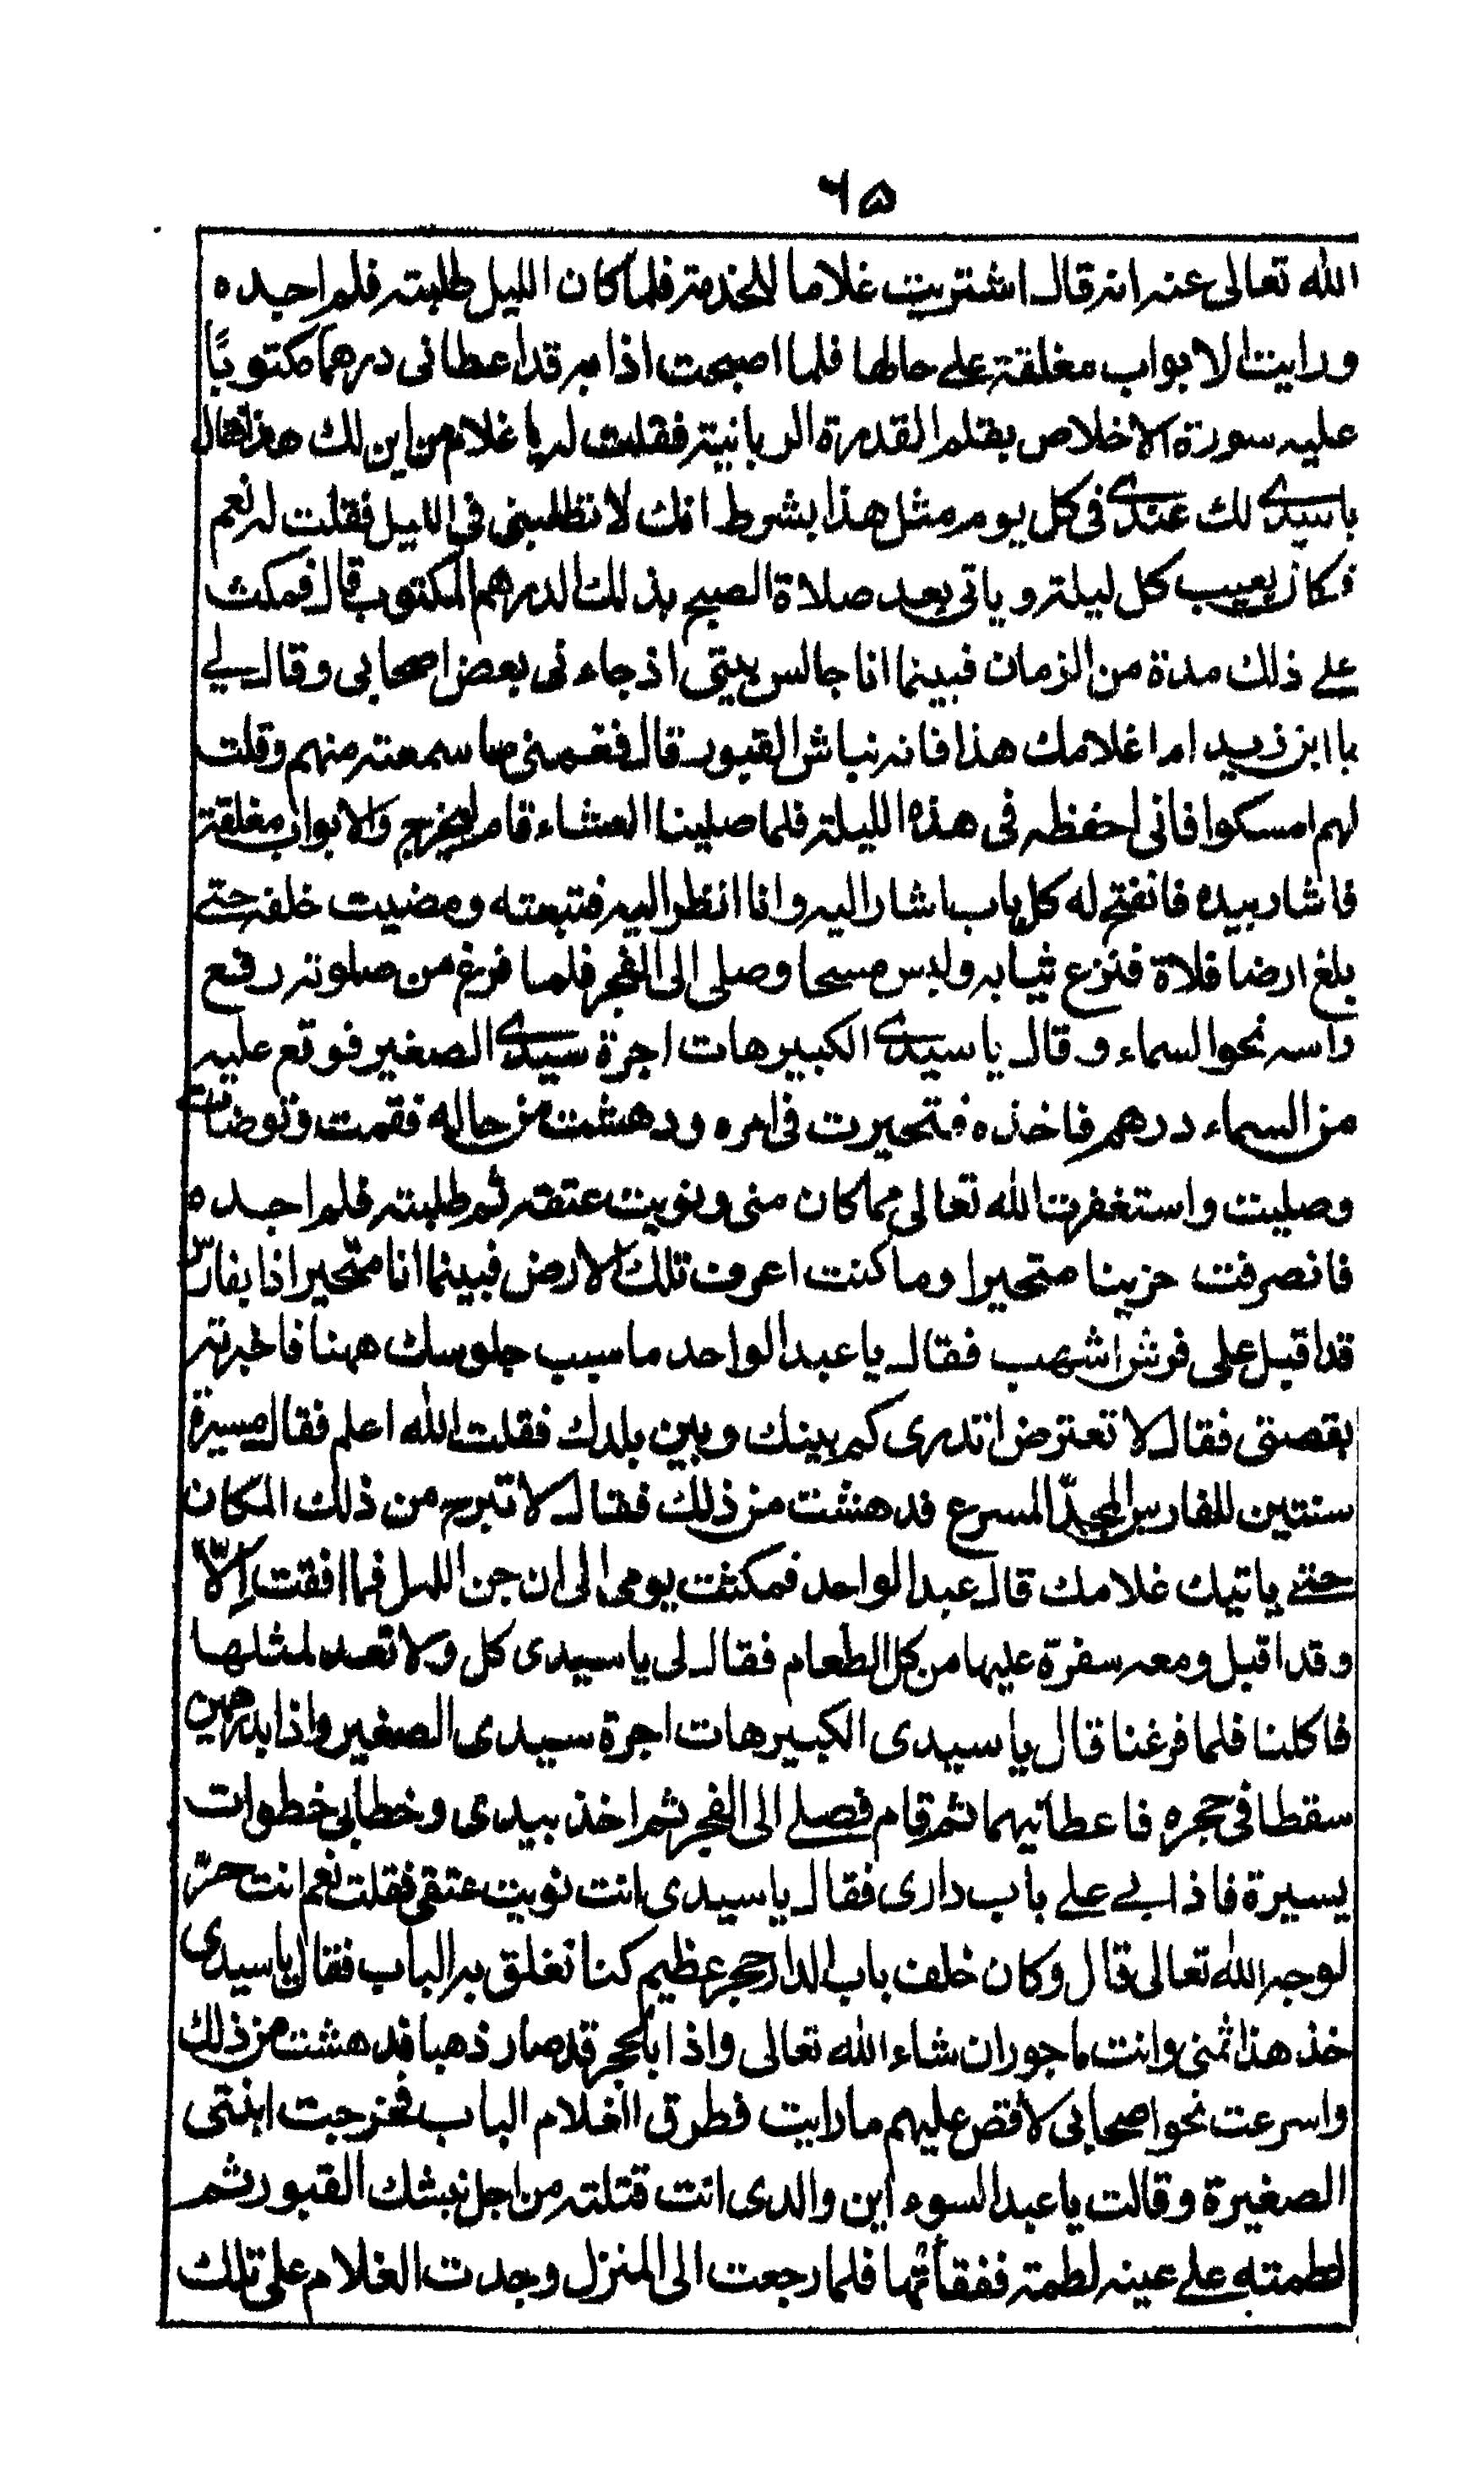 ٦٥
الله تعالى عنه انه قال اشتريت غلاما للخدمة فلما كان الليل طلبته فلم اجده
ورايت الابواب مغلقة على حالها فلما اصبحت اذا به قد اعطانى درهما مكتوبًا
عليه سورة الاخلاص بقلم القدرة الربانية فقلت له يا غلام من اين لك هذا فقال
يا سيدى لك عندى فى كل يوم مثل هذا بشرط انك لا تطلبنى فى الليل فقلت له نعم
فكان يغيب كل ليلة و ياتى بعد صلاة الصبح بذلك الدرهم المكتوب قال فمكث
على ذلك مدة من الزمان فبينما انا جالس ببيتى اذ جاءنى بعض اصحابى وقال لى
يا ابن زيد امر غلامك هذا فانه نباش القبور قال فغمنى ما سمعته منهم وقلت
لهم امسكوا فانى احفظه فى هذه الليلة فلما صلينا العشاء قام ليخرج والابواب مغلقة
فاشار بيده فانفتح له كل باب اشار اليه وانا انظر اليه فتبعته ومضيت خلفه حتى
بلغ ارضا فلاة فنزع ثيابه ولبس مسحا وصلى الى الفجر فلما فرغ من صلوته رفع
راسه نحو السماء وقال يا سيدى الكبير هات اجرة سيدى الصغير فوقع عليه
من السماء درهم فاخذه فتحيرت فى امره ودهشت من حاله فقمت وتوضات
وصليت واستغفرت الله تعالى مما كان منى ونويت عتقه ثم طلبته فلم اجده
فانصرفت حزينا متحيرا وما كنت اعرف تلك الارض فبينما انا متحير اذا بفارس
قد اقبل على فرش اشهب فقال يا عبد الواحد ما سبب جلوسك ههنا فاخبرته
بقصتى فقال لا تعترض اتدرى كم بينك وبين بلدك فقلت الله اعلم فقال مسيرة
سنتين للفارس المجدّ المسرع فدهشت من ذلك فقال لا تبرح من ذلك المكان
حتى ياتيك غلامك قال عبد الواحد فمكثت يومى الى ان جن الليل فما افقت إلّا
وقد اقبل ومعه سفرة عليها من كل الطعام فقال لى يا سيدى كل ولا تعد لمثلها
فاكلنا فلما فرغنا قال يا سيدى الكبير هات اجرة سيدى الصغير واذا بدرهمين
سقطا فى حجره فاعطانيهما ثم قام فصلى الى الفجر ثم اخذ بيدى وخطا بى خطوات
يسيرة فاذا بى على باب دارى فقال يا سيدى انت نويت عتقى فقلت نعم انت حرّ
لوجه الله تعالى قال وكان خلف باب الدار حجر عظيم كنا نغلق به الباب فقال يا سيدى
خذ هذا ثمنى وانت ماجور ان شاء الله تعالى واذا بالحجر قد صار ذهبا فدهشت من ذلك
واسرعت نحو اصحابى لاقص عليهم ما رايت فطرق الغلام الباب فخرجت ابنتى
الصغيرة وقالت يا عبد السوء اين والدى انت قتلته من اجل نبشك القبور ثم
لطمته على عينه لطمة ففقأتها فلما رجعت الى المنزل وجدت الغلام على تلك